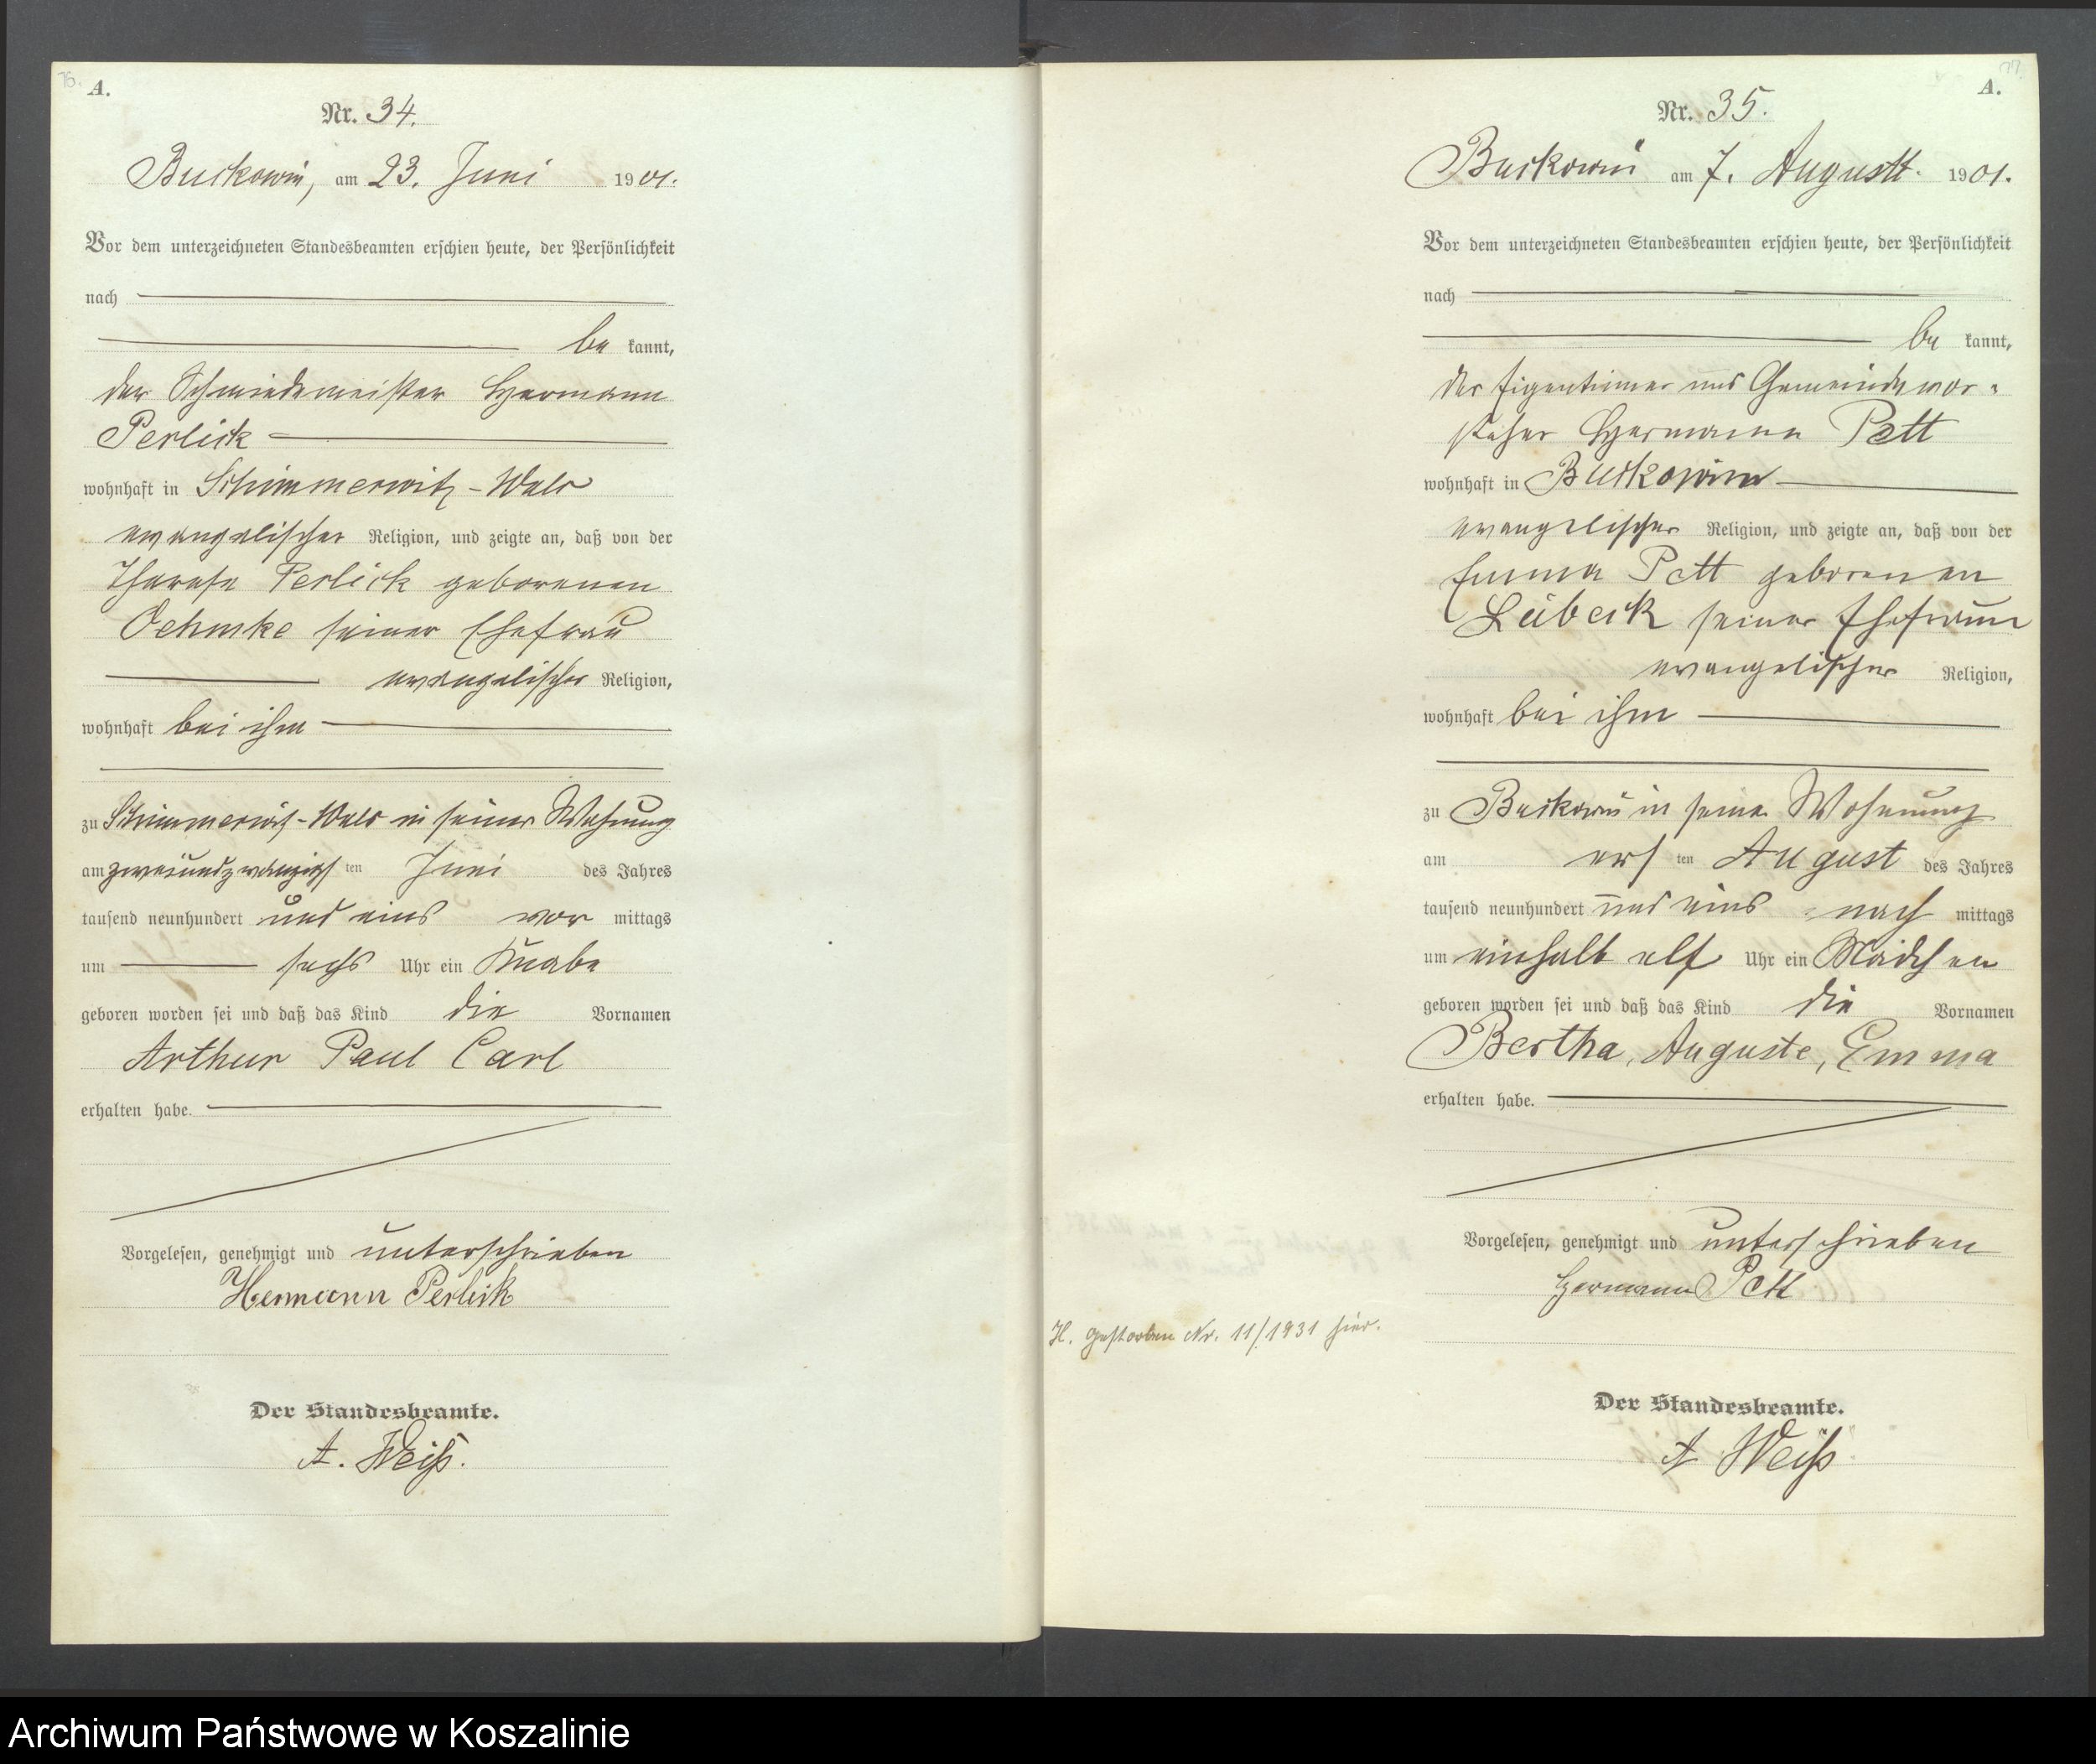 76.
A.
Nr. 34.
Buckowin, am 23. Juni 1901.
Vor dem unterzeichneten Standesbeamten erschien heute, der Persönlichkeit
nach
be kannt,
der Schmiedemeister Hermann
Perlick
wohnhaft in Schimmerwitz-Wald
evangelischer Religion, und zeigte an, daß von der
Therese Perlick geborenen
Oehmke seiner Ehefrau
evangelischer Religion,
wohnhaft bei ihm
zu Schimmerwitz-Wald in seiner Wohnung
am zweiundzwanzigsten Juni des Jahres
tausend neunhundert und eins vor mittags
um sechs Uhr ein Knabe
geboren worden sei und daß das Kind die Vornamen
Arthur Paul Carl
erhalten habe.
Vorgelesen, genehmigt und unterschrieben
Hermann Perlick
Der Standesbeamte.
A. Weiß.
77.
A.
Nr. 35.
Buckowin am 7. August 1901.
Vor dem unterzeichneten Standesbeamten erschien heute, der Persönlichkeit
nach
be kannt,
der Eigentümer und Gemeindevor-
steher Hermann Pett
wohnhaft in Buckowin
evangelischer Religion, und zeigte an, daß von der
Emma Pett geborenen
Lübeck seiner Ehefrau
evangelischer Religion,
wohnhaft bei ihm
zu Buckowin in seiner Wohnung
am ersten August des Jahres
tausend neunhundert und eins nach mittags
um einhalb elf Uhr ein Mädchen
geboren worden sei und daß das Kind die Vornamen
Bertha, Auguste, Emma
erhalten habe.
Vorgelesen, genehmigt und unterschrieben
Hermann Pett
H. gestorben Nr. 11/1931 hier.
Der Standesbeamte.
A Weiß
Archiwum Państwowe w Koszalinie